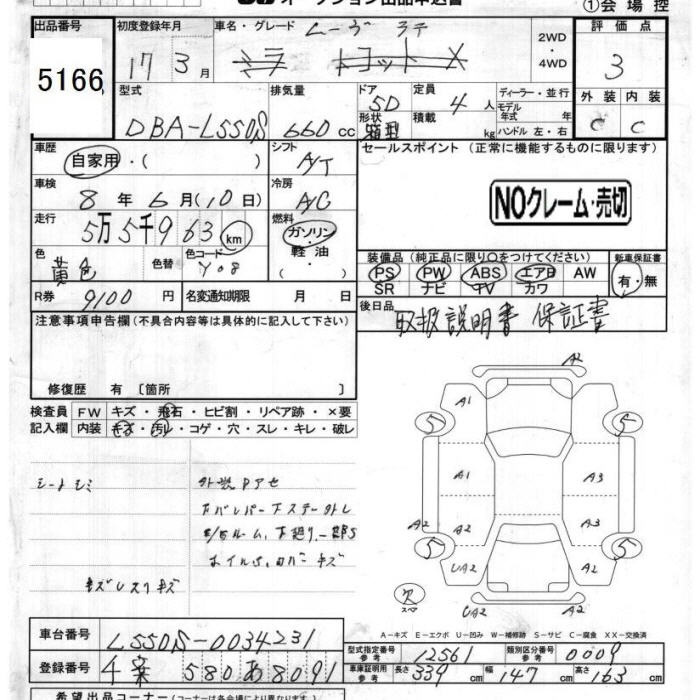 オークション出品申込書
①会場控
出品番号 5166
初度登録年月 17 3月
車名・グレード ムーヴ ラテ
ミラ トコット X
2WD・4WD
評価点 3
外装 内装
C C
型式 DBA-L550S
排気量 660cc
ドア 5D
形状 箱型
定員 4人
積載 kg
ディーラー・並行
モデル年式 年式
ハンドル 左・右
車歴 自家用・( )
シフト A/T
セールスポイント (正常に機能するものに限ります)
NOクレーム・売切
車検 8年6月(10日)
冷房 A/C
走行 5万5千963km
燃料 ガソリン・軽油・
色 黄色 色替 色コード Y08
装備品(純正品に限り○をつけてください)
PS PW ABS エアB AW
SR ナビ TV カワ
新車保証書 有・無
R券 9100円
名変通知期限 月 日
後日品 取扱説明書 保証書
注意事項申告欄(不具合内容等は具体的に記入して下さい)
修復歴 有〔箇所 〕
検査員 FW キズ・飛石・ヒビ割・リペア跡・×要
記入欄 内装 キズ・汚レ・コゲ・穴・スレ・キレ・破レ
シートシミ
外装口アセ
キズレスリキズ
A2
A1
5 5
A1 A3
A2 A2 A3
5 5
UA2 A2
欠
スペア
UA2 A2
A-キズ E-エクボ U-凹み W-補修跡 S-サビ C-腐食 XX-交換済
車台番号 L550S-0034231
型式指定番号 参考 12561
類別区分番号 参考 0009
登録番号 千葉 580 あ 8091
車庫証明用 参考 長さ 339cm 幅 147cm 高さ 163cm
希望出品コーナー(コーナーは各会場により異なります)